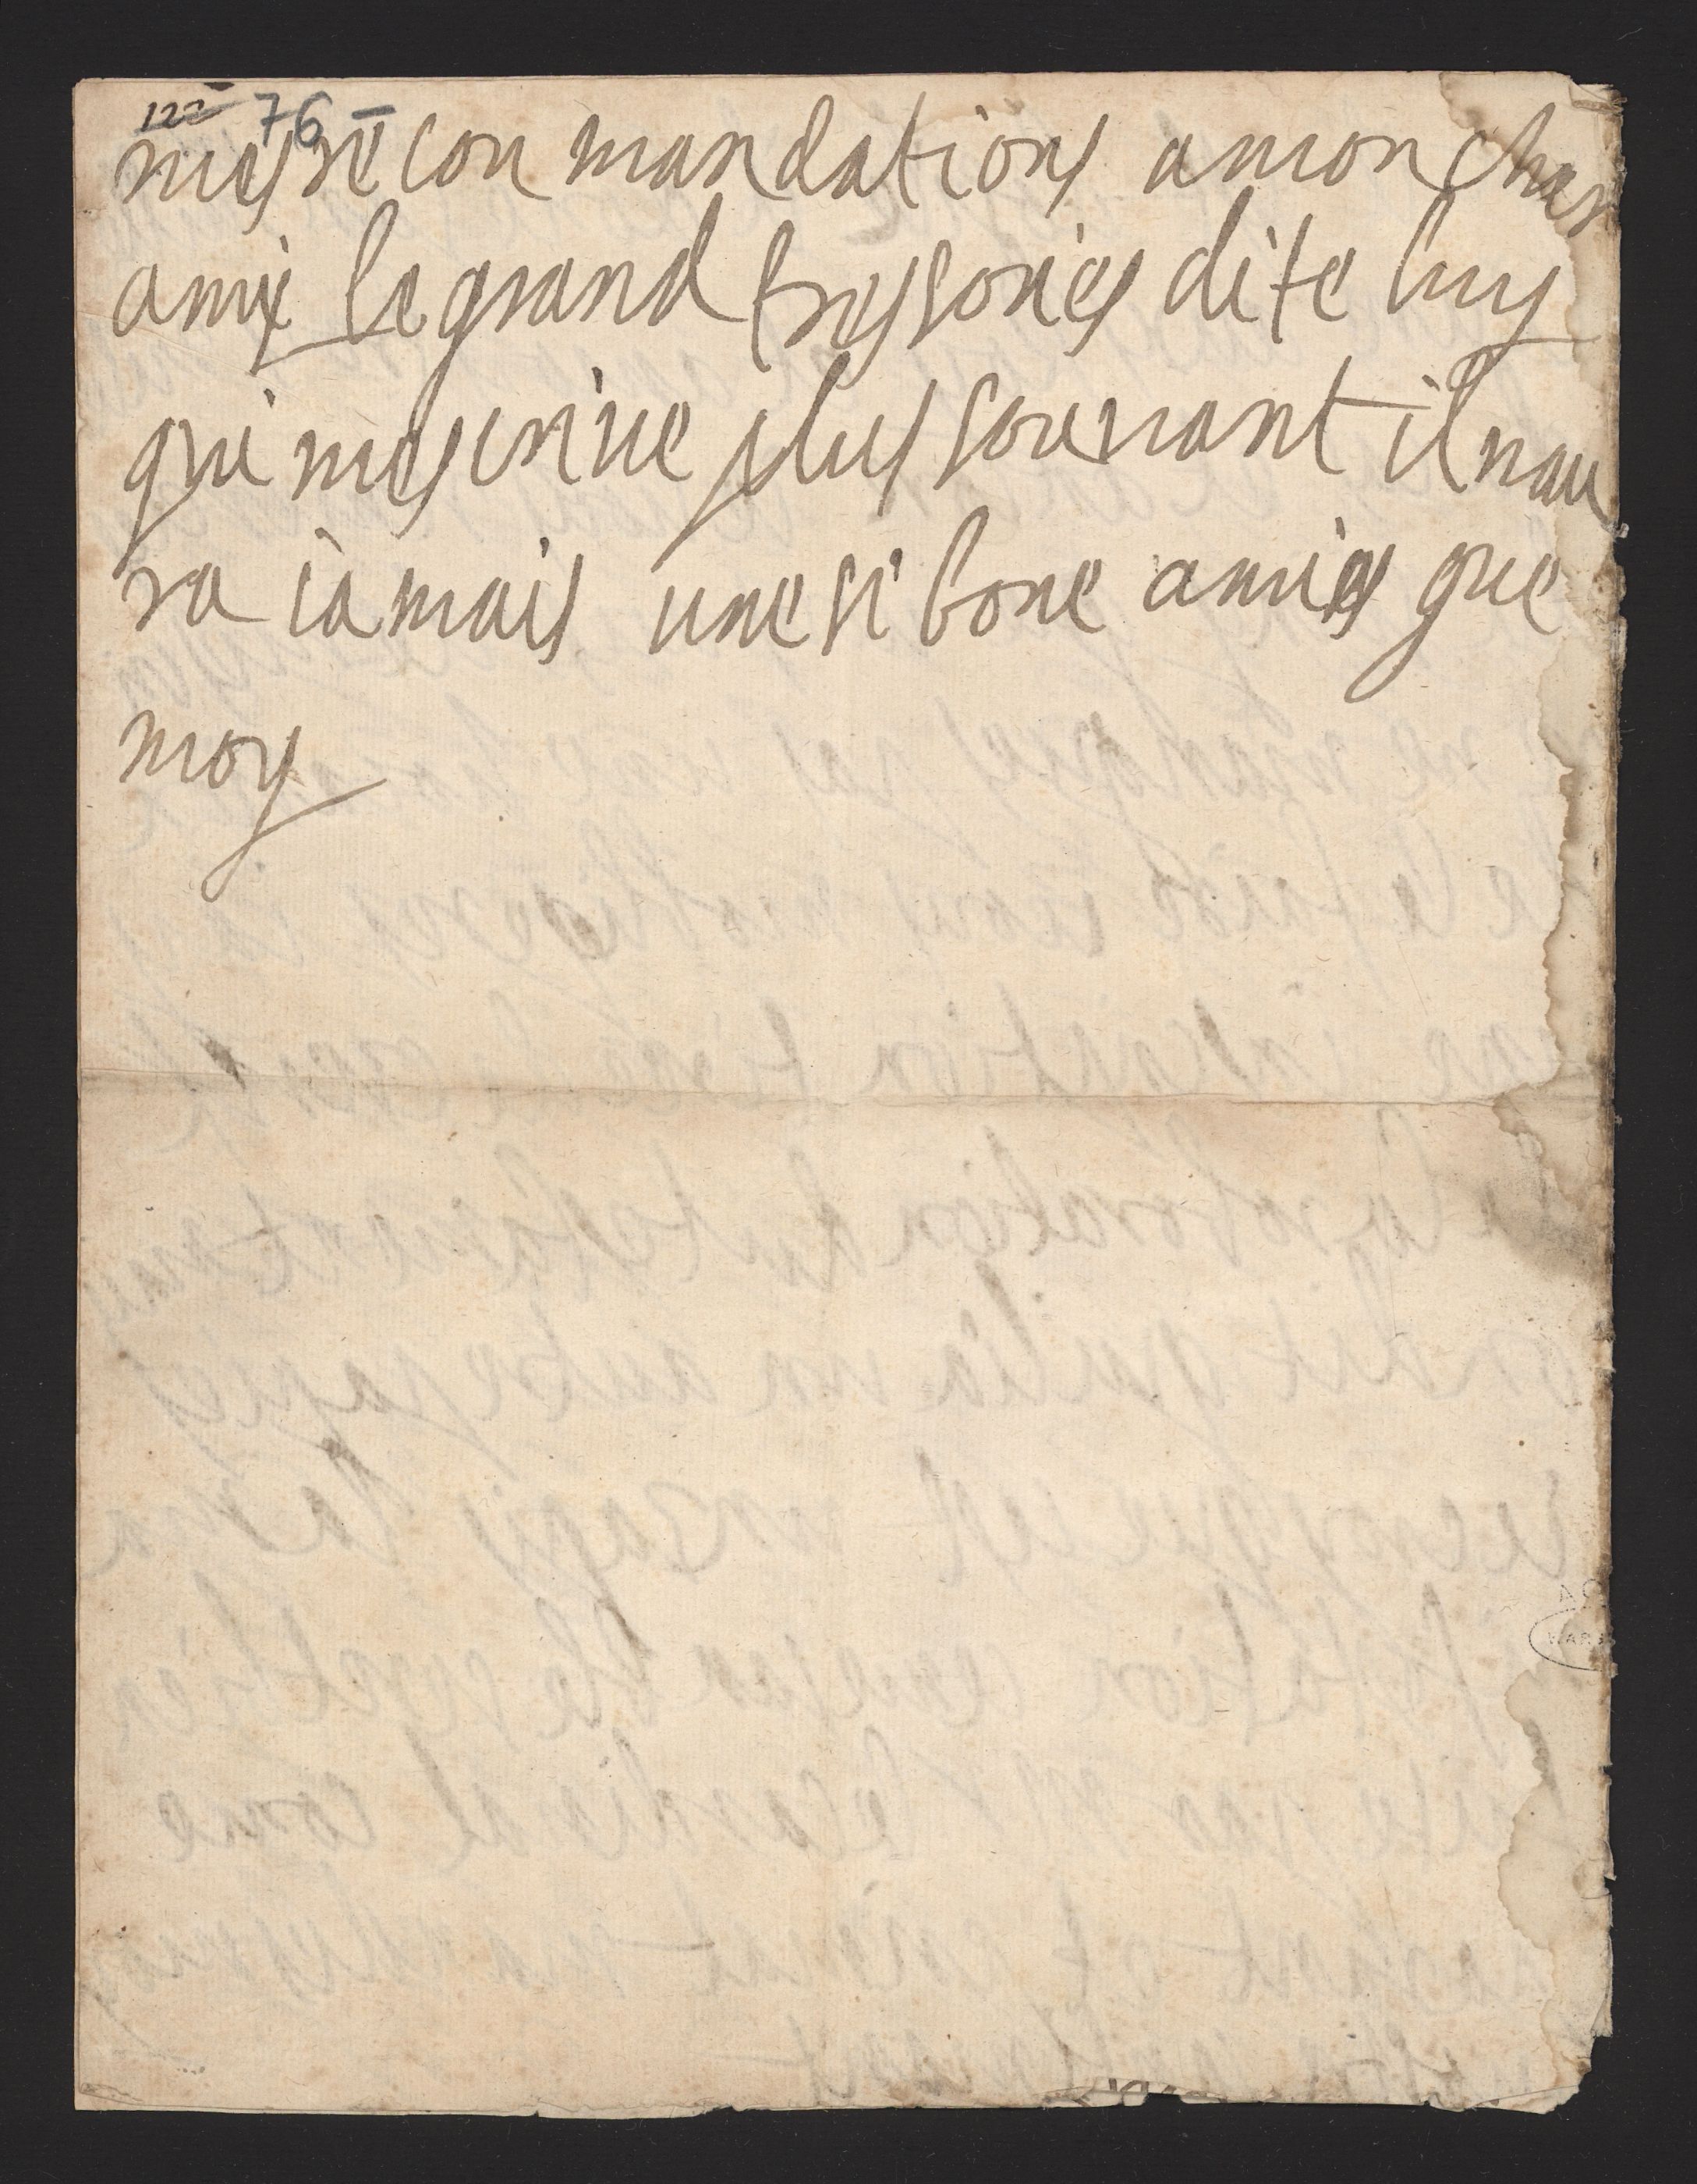 122 76
mes recon mandations amon cher
amy le grand tresories dite luy
qui mescrive plus souvant il nau
ra iamais une si bone amies que
moy
WAR